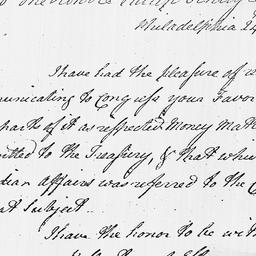 Philadelphia 24
I have had the pleasure of
municating to Congress your Favor
part of it as respected Money Matt
mitted to the Treasury, & that whi
dian Affairs was referred to the C
at Subject.
I have the honor to be wit